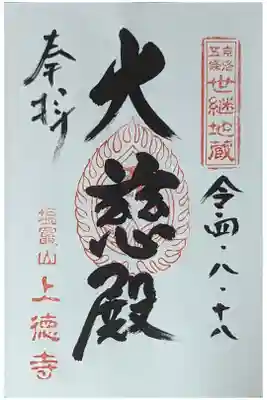 京洛
五條
世継地蔵
令四・八・十八
大慈殿
奉拝
塩竈山
上徳寺